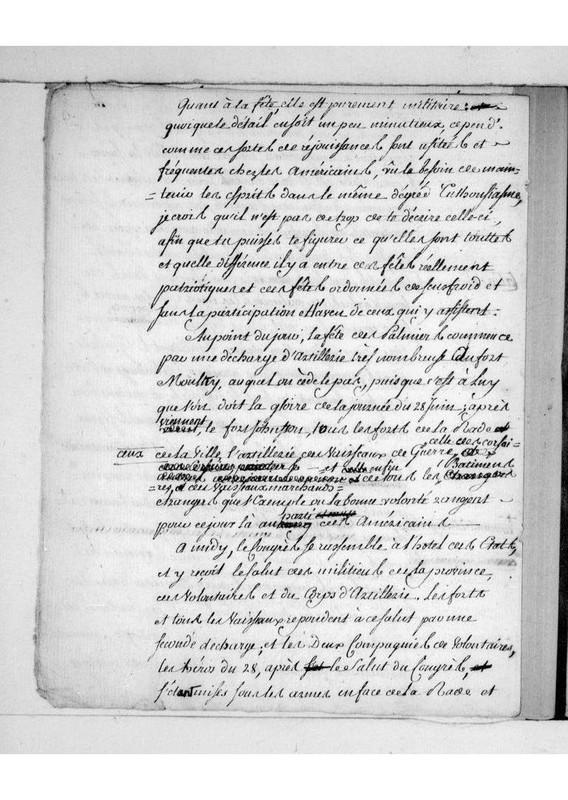 Quant à la fête, elle est purement militaire:
quoique le détail en soit un peu minutieux, cepend.t
comme ces sortes de réjouissances sont usitées et
fréquentes chez les Américains, vû le besoin de main=
=tenir les esprits dans le même dégré d'Enthousiasme,
je crois qu'il n'est pas de trop de te décrire celle-ci,
afin que tu puisses te figurer ce qu'elles sont touttes
et quelle différence il y a entre ces fêtes réellement
patriotiques et ces fêtes ordonnées de sens froid et
sans la participation et l'aveu de ceux qui y assistent.
Au point du jour, la fête des Palmiers commence
par une décharge d'Artillerie très nombreuse du fort
Moultry, auquel on cède le pas, puisque c'est à Luy
que l'on doit la gloire de la journée du 28 juin; après
viennent
le fort Johnston, tous les forts de la Rade
celle des corsai=
ceux de la Ville, l'artillerie des Vaisseaux de Guerre,
et enfin de tous les Batimens
=res, et des Vaisseaux marchands=
étrangers que l'Exemple ou la bonne volonté rangent
parti
pour ce jour là au des Américains
A midy, le Congrès se rassemble à l'hotel des Etats,
et y reçoit le salut des milices de la province,
des Volontaires et du Corps d'Artillerie. Les forts
et tous les Vaisseaux repondent à ce salut par une
seconde décharge, et les Deux Compagnies de Volontaires,
les héros du 28, après le Salut du Congrès,
s'étant mises sous les armes en face de la Rade et